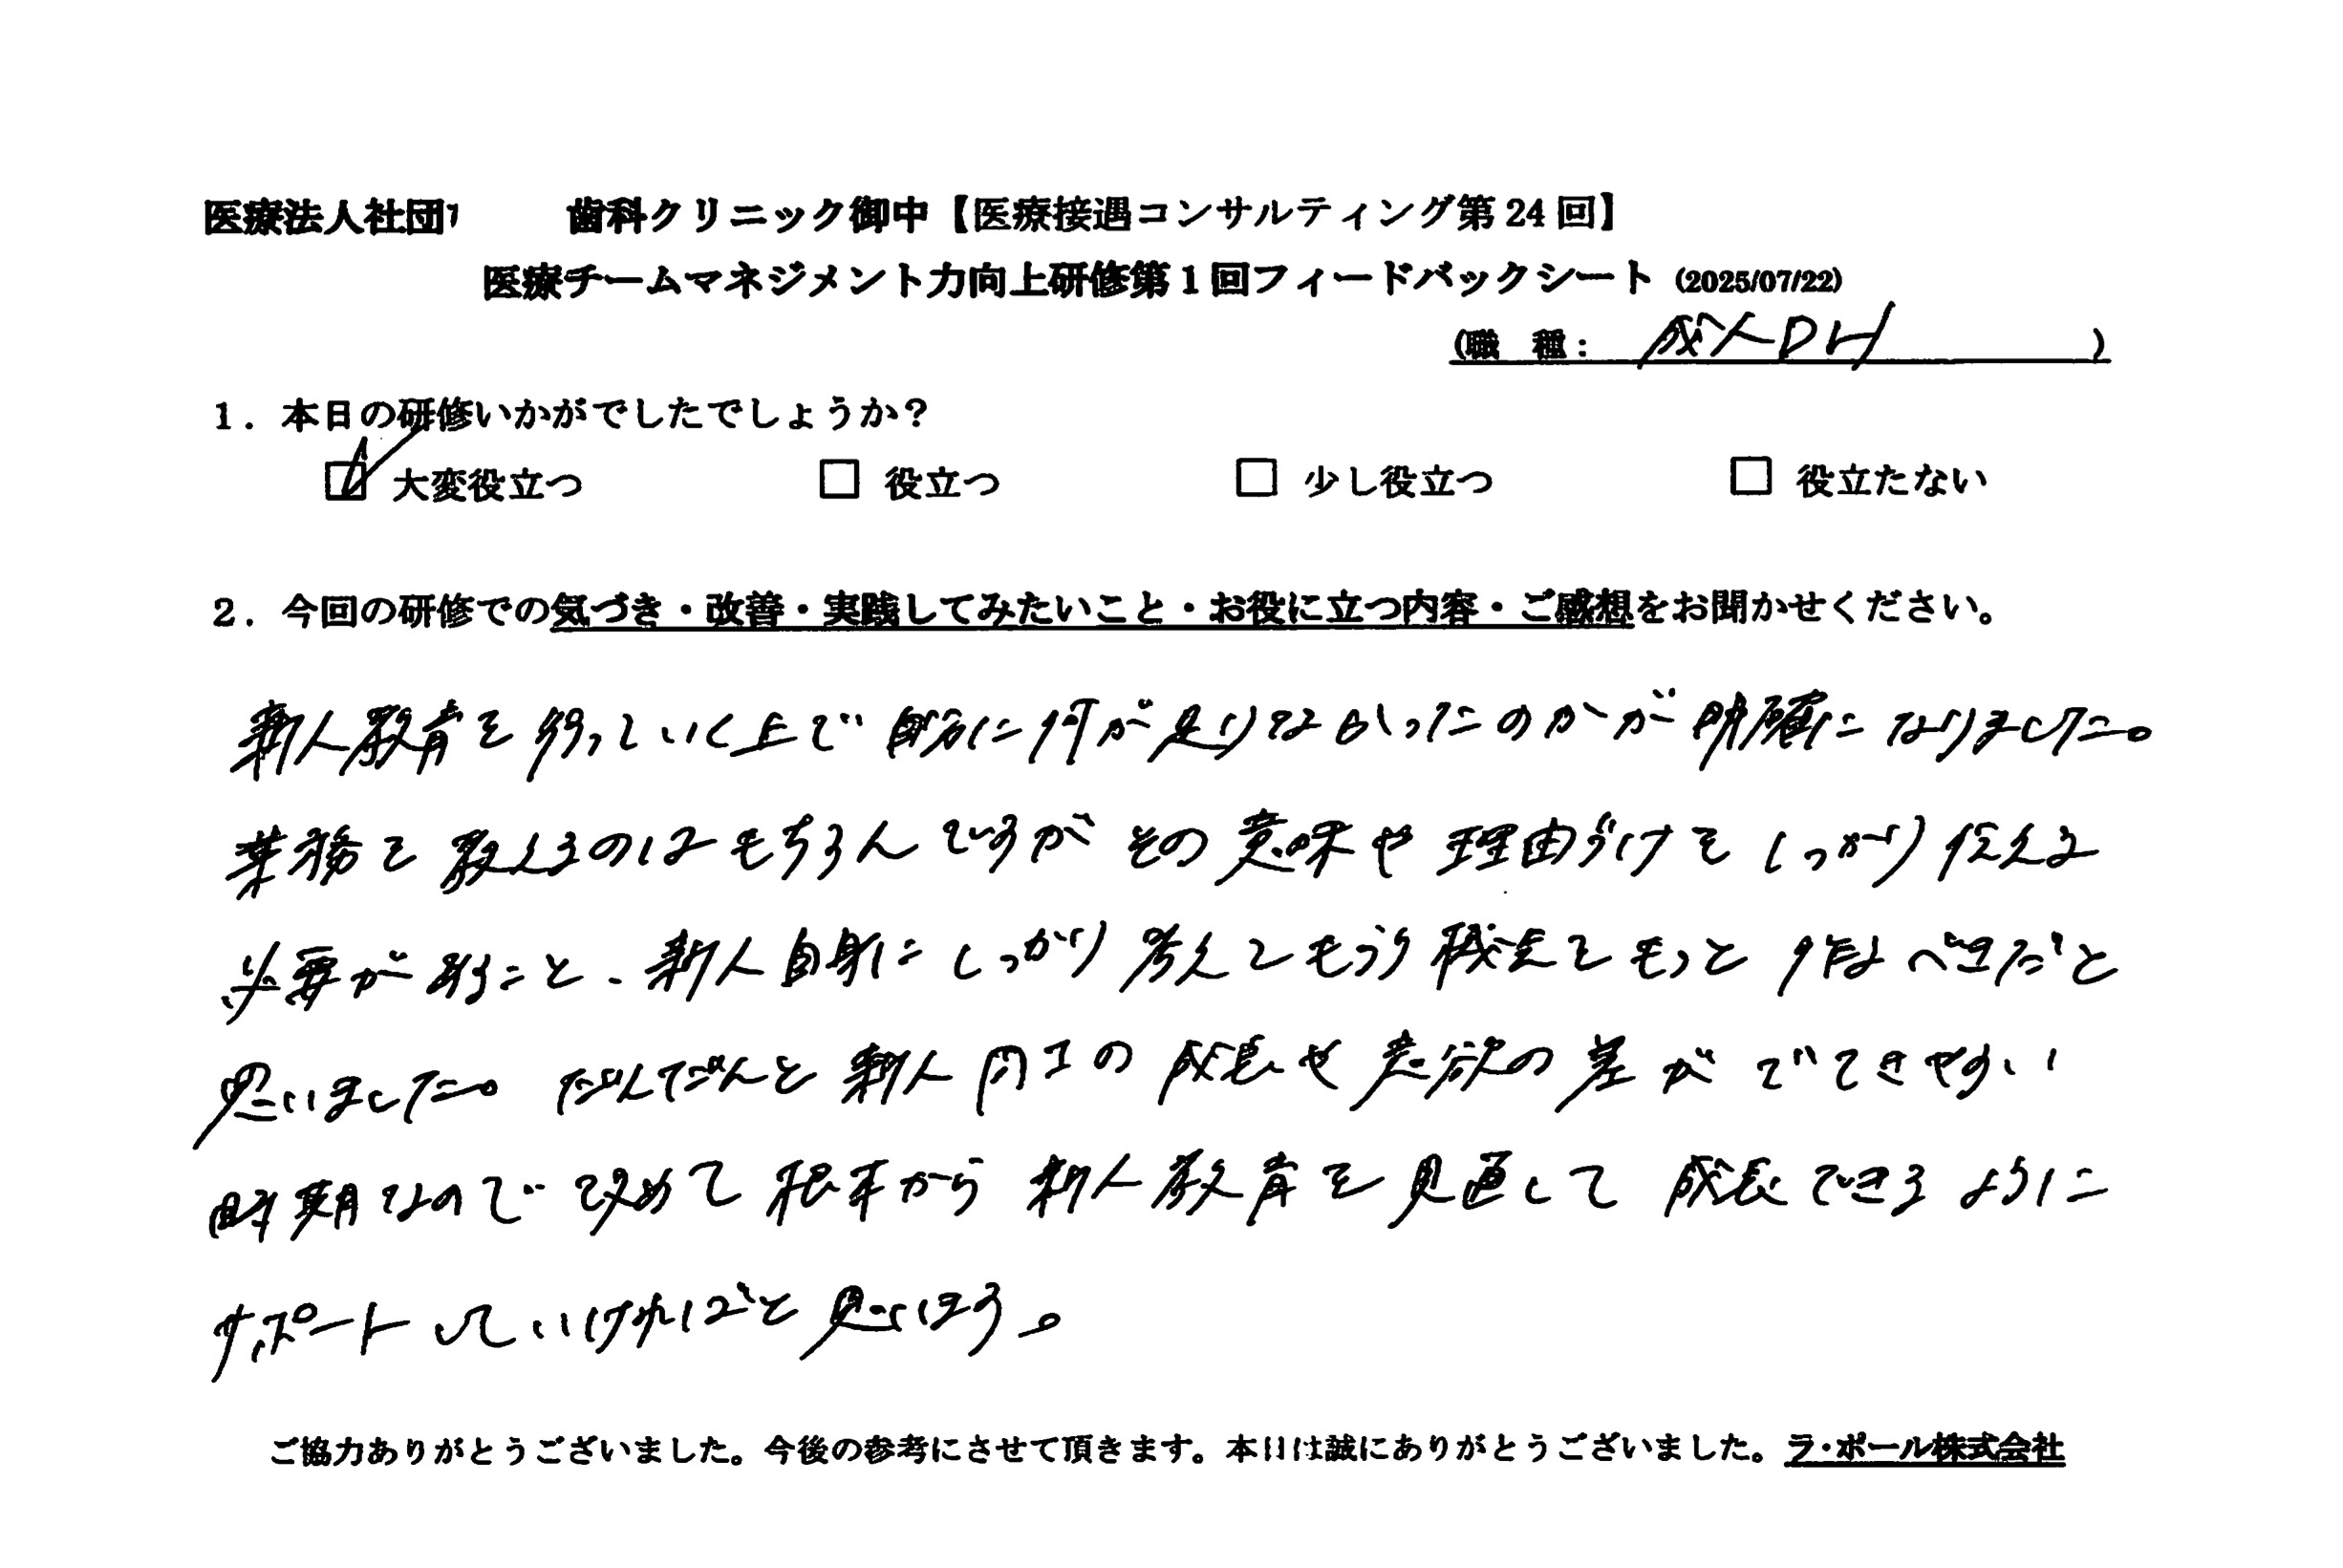 医療法人社団 歯科クリニック御中【医療接遇コンサルティング第24回】
医療チームマネジメント力向上研修第1回フィードバックシート (2025/07/22)
(職 種: 成人DH )
1. 本日の研修いかがでしたでしょうか?
☑ 大変役立つ □ 役立つ □ 少し役立つ □ 役立たない
2. 今回の研修での気づき・改善・実践してみたいこと・お役に立つ内容・ご感想をお聞かせください。
新人教育を行っていく上で自分に何が足りなかったのかが明確になりました。
業務を教えるのはもちろんですがその意味や理由づけをしっかり伝える
必要があること、新人自身にしっかり考えてもらう機会をもっと作るべきだと
思いました。だんだんと新人同士の成長や意欲の差がでてきやすい
時期なので改めて根本から新人教育を見直して成長できるように
サポートしていければと思います。
ご協力ありがとうございました。今後の参考にさせて頂きます。本日は誠にありがとうございました。ラ・ポール株式会社